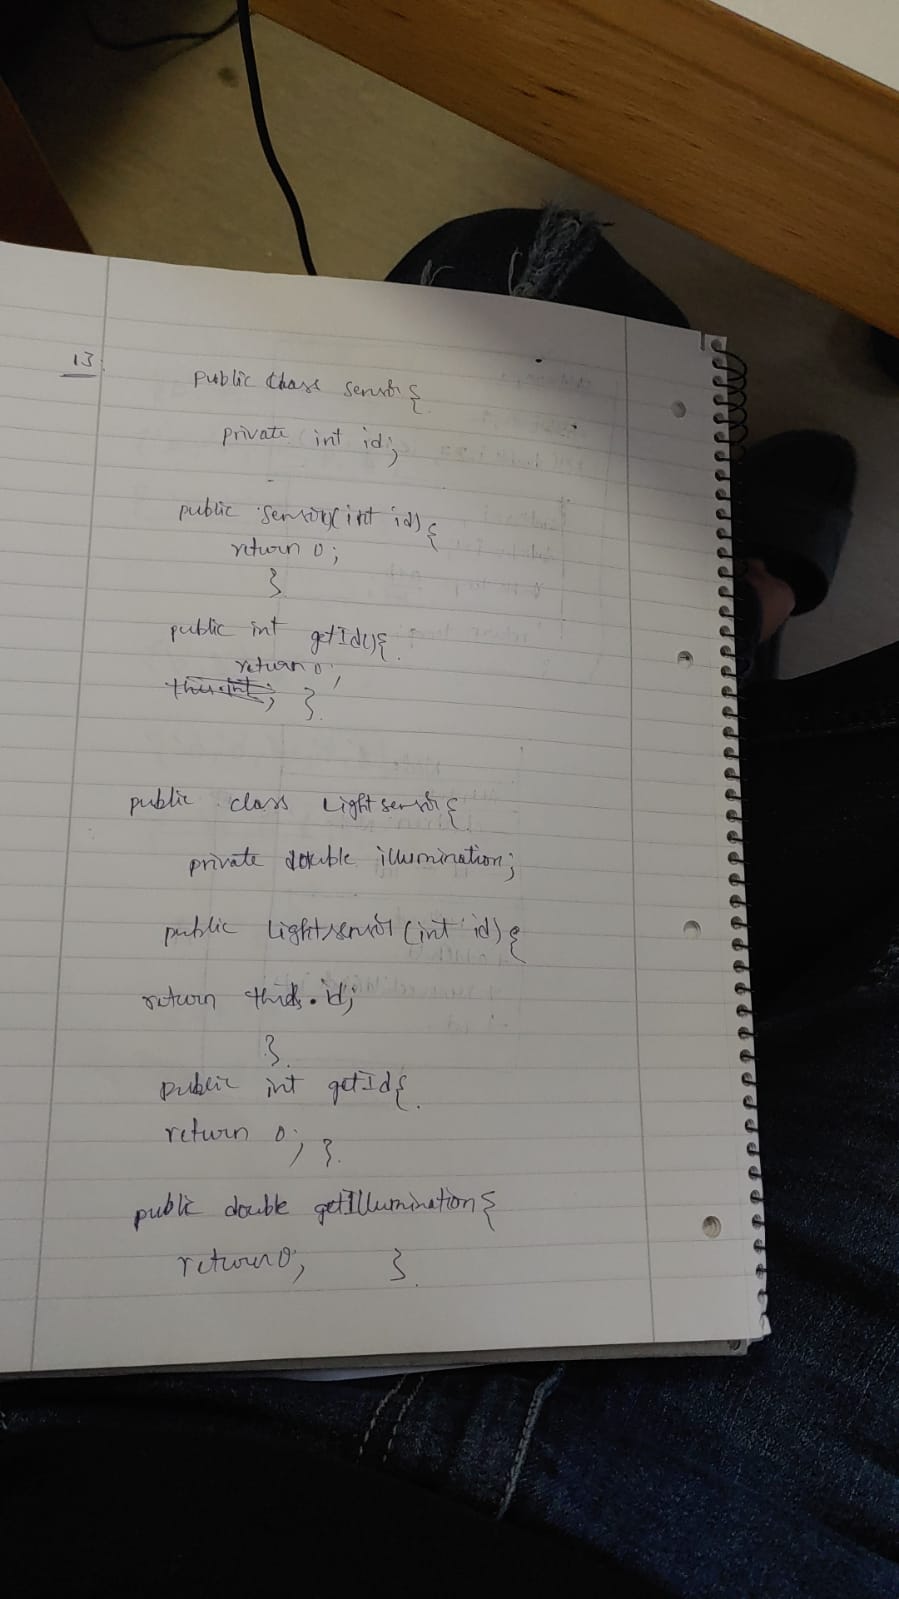 13
public class sensor{
private int id;
public sensor(int id){
return 0;
}
public int getId(){
return 0;
}
public class Lightsensor{
private double illumination;
public Lightsensor (int id){
return this.id;
}
public int getId{
return 0; }
public double getIllumination{
return 0; }